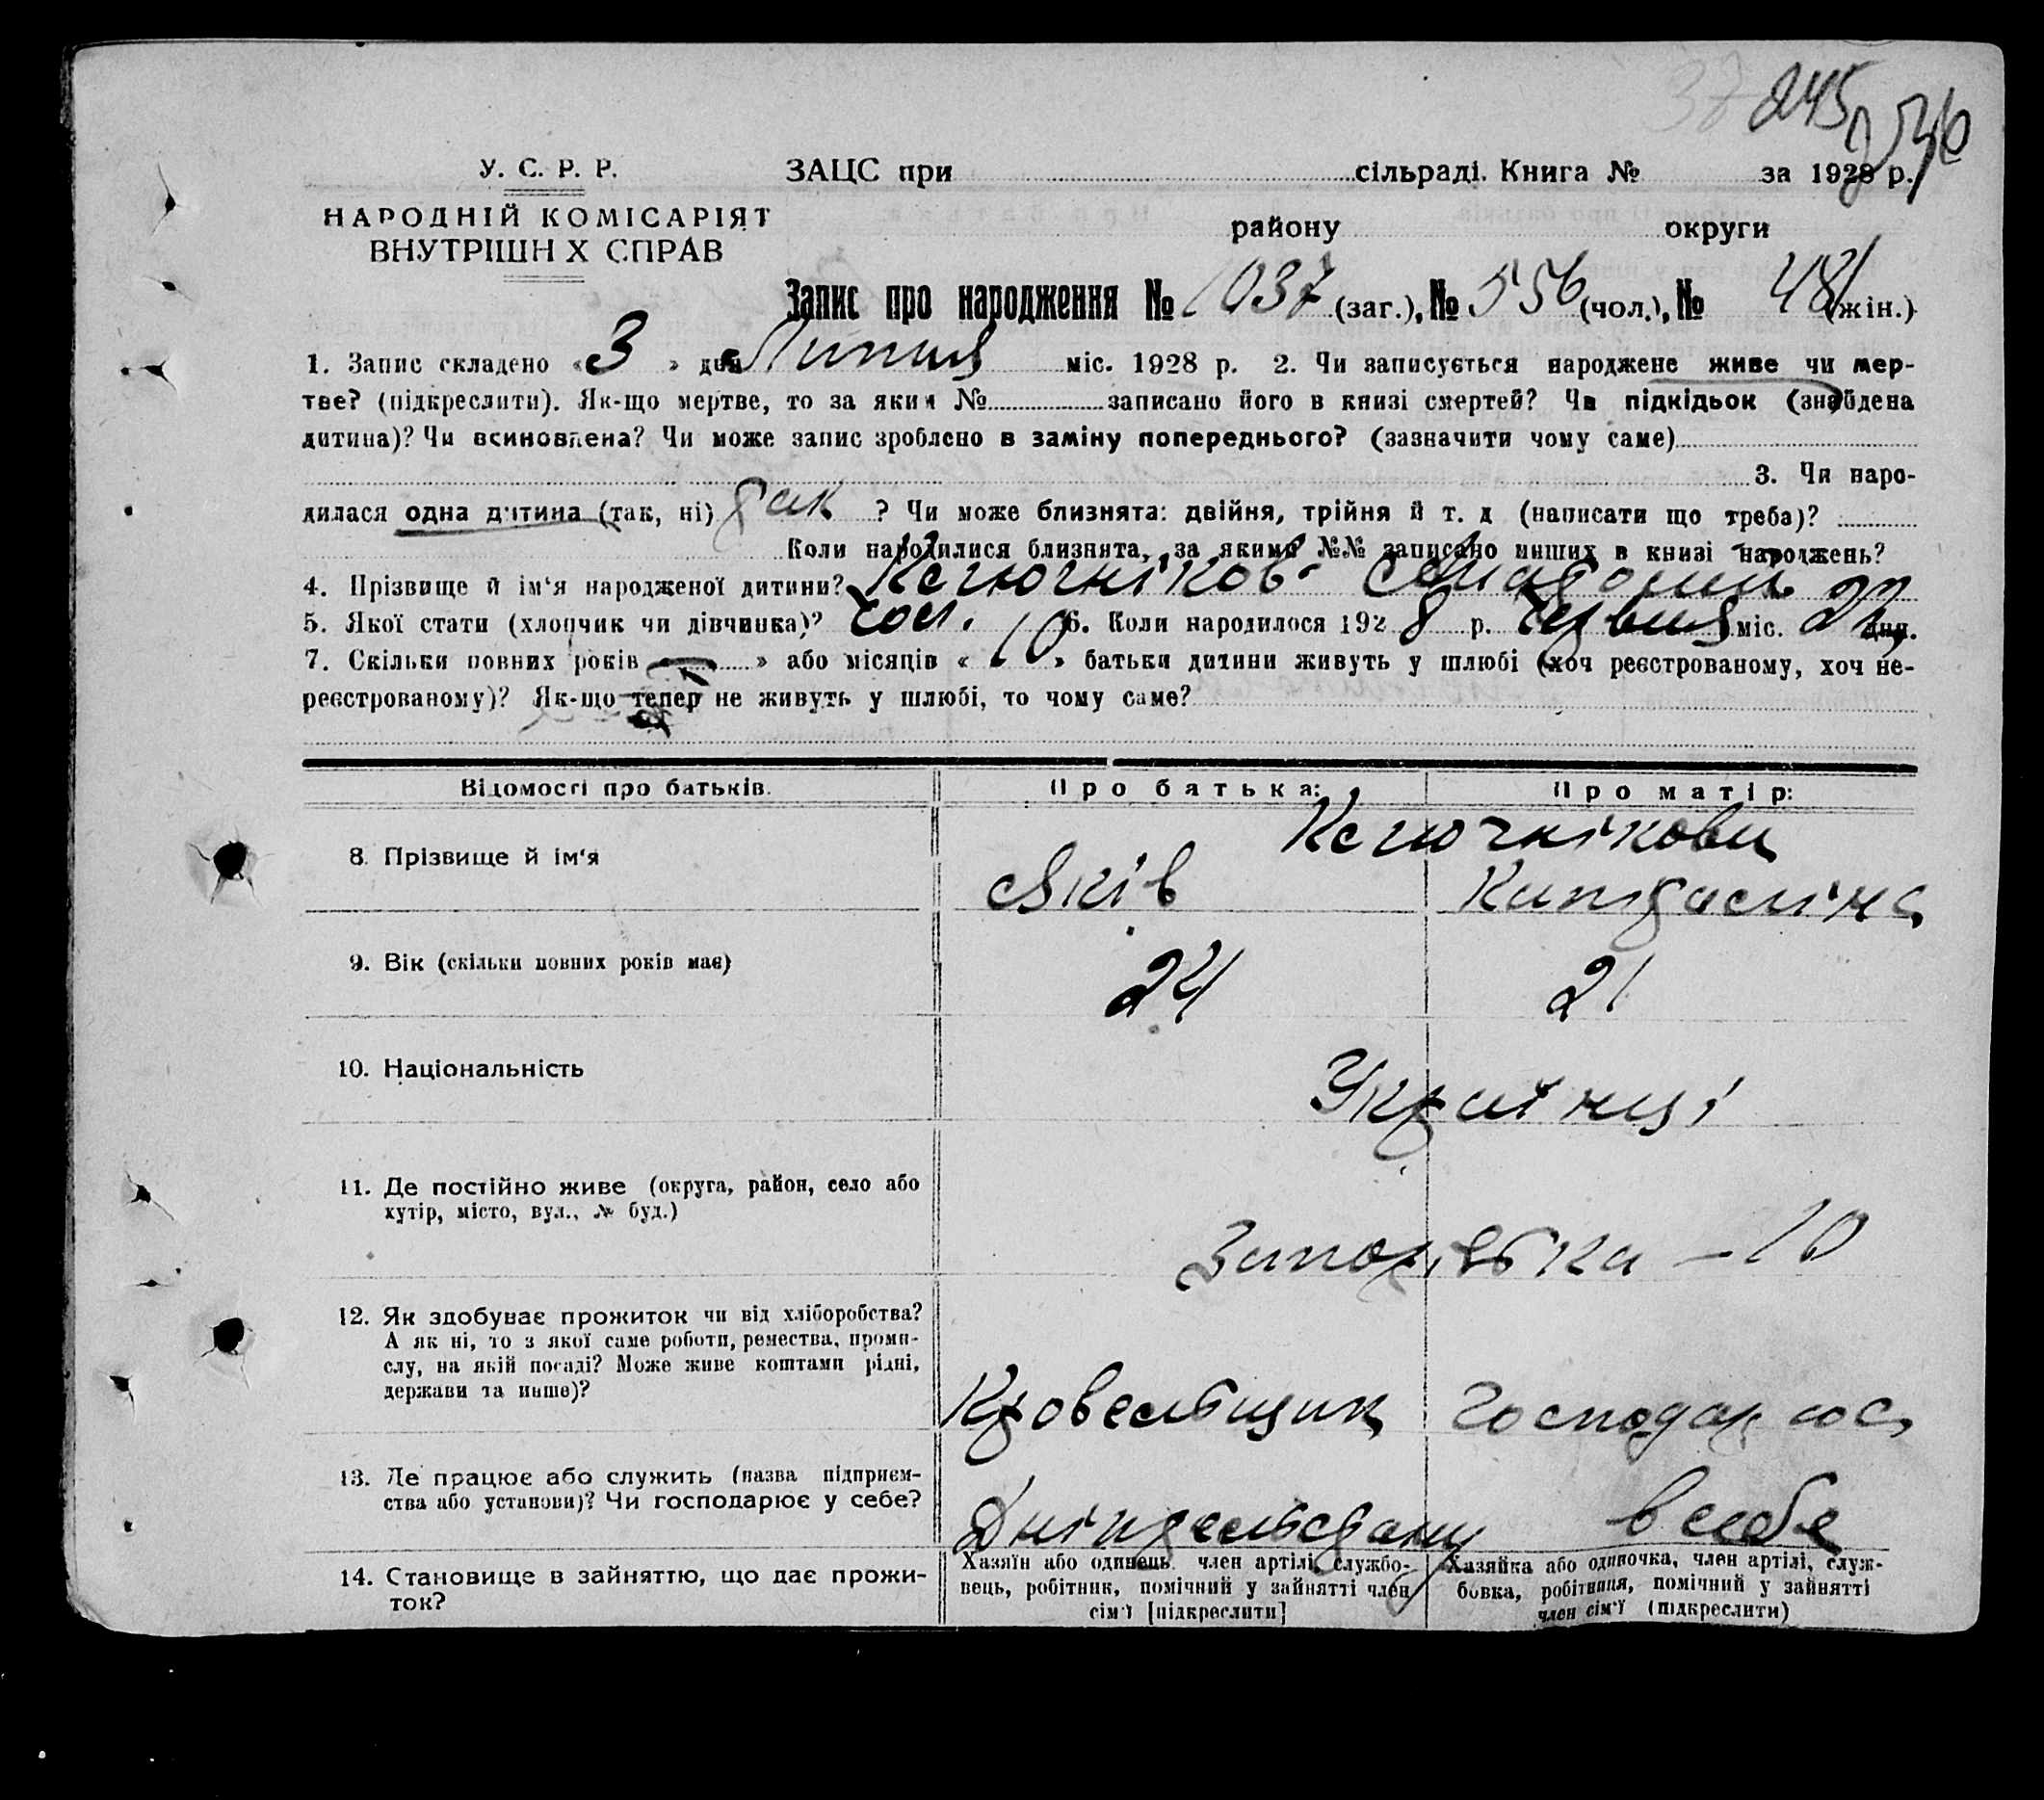 245
236
У. С. Р. Р.
ЗАЦС при сільраді. Книга № за 1928 р.
НАРОДНІЙ КОМІСАРІЯТ
ВНУТРІШН Х СПРАВ
району округи
Запис про народження № 1037 (заг.), № 556 (чол.), № 481 (жін.)
1. Запис складено «3» дня Липня міс. 1928 р. 2. Чи записується народжене живе чи мер-
тве? (підкреслити). Як-що мертве, то за яким № записано його в книзі смертей? Чи підкідьок (знайдена
дитина)? Чи всиновлена? Чи може запис зроблено в заміну попереднього? (зазначити чому саме)
3. Чи наро-
дилася одна дитина (так, ні) так ? Чи може близнята: двійня, трійня й т. д (написати що треба)?
Коли народилися близнята, за якими №№ записано инших в книзі народжень?
4. Прізвище й ім‘я народженої дитини? Ключніков Анатолий
5. Якої стати (хлопчик чи дівчинка)? чол. 6. Коли народилося 1928 р. червня міс. 22 дня.
7. Скільки повних років « — » або місяців « 10 » батьки дитини живуть у шлюбі (хоч реєстрованому, хоч не-
реєстрованому)? Як-що тепер не живуть у шлюбі, то чому саме?
Відомості про батьків. Про батька: Про матір:
Ключнікови
8. Прізвище й ім‘я Яків Капталіна
9. Вік (скільки повних років має) 24 21
10. Національність Українці
11. Де постійно живе (округа, район, село або
хутір, місто, вул., № буд.)
Запорізька – 10
12. Як здобуває прожиток чи від хліборобства?
А як ні, то з якої саме роботи, ремества, проми-
слу, на якій посаді? Може живе коштами рідні,
держави та инше)?
Кровельщик Господарює
13. Де працює або служить (назва підприєм-
ства або установи)? Чи господарює у себе?
Дніпрельстану в себе
14. Становище в зайняттю, що дає прожи-
ток?
Хазяїн або одинець член артілі, службо-
вець, робітник, помічний у зайнятті член
сім‘ї [підкреслити]
Хазяйка або одиночка, член артілі, служ-
бовка, робітниця, помічний у зайнятті
член сім‘ї (підкреслити)